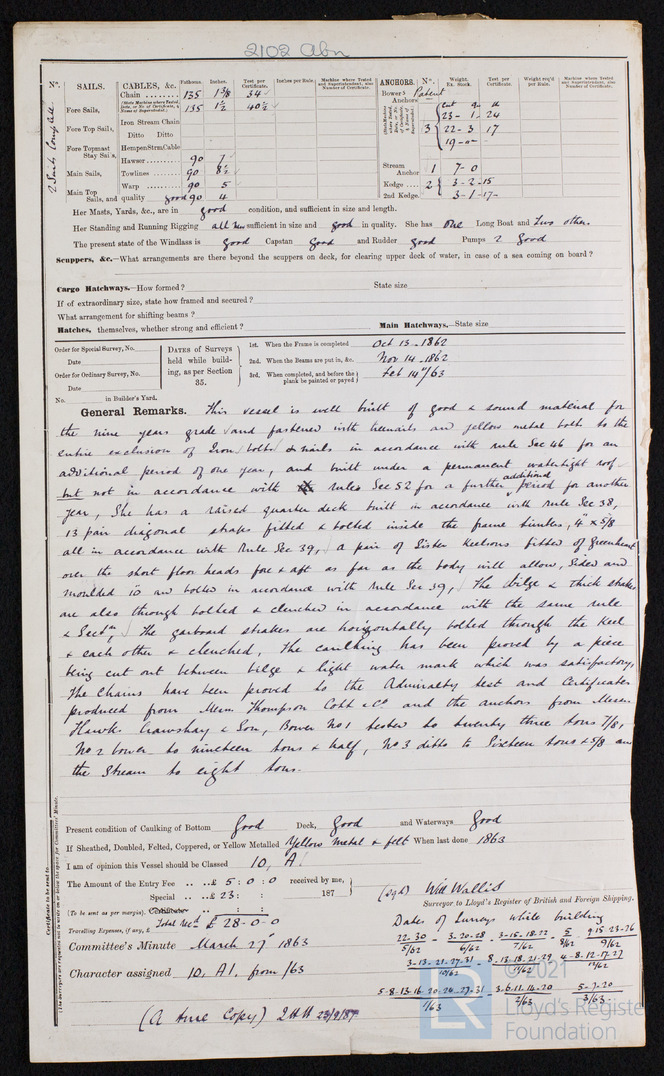 2102 Abn
SAILS. CABLES, &c. Fathoms. Inches. Test per Certificate. Inches per Rule. Machine where Tested and Superintendent, also Number of Certificate. ANCHORS. No. Weight. Ex. Stock. Test per Certificate. Weight req'd per Rule. Machine where Tested and Superintendent, also Number of Certificate.
2 Suits Complete
Fore Sails,
Fore Top Sails,
Fore Topmast Stay Sails,
Main Sails,
Main Top Sails, and quality good
Chain 135 1 3/8 34
135 1 1/2 40 1/2
Iron Stream Chain
Ditto Ditto
Hempen Strm. Cable
Hawser 90 7
Towlines 90 8 1/2
Warp 90 5
90 4
Bower Anchors Patent
3
23 - 1 - 24
22 - 3 17
19 - 0 -
Stream Anchor 1 7 - 0
Kedge 2 3 - 2 - 15
2nd Kedge. 3 - 1 - 17 -
Her Masts, Yards, &c., are in good condition, and sufficient in size and length.
Her Standing and Running Rigging all new sufficient in size and good in quality. She has One Long Boat and Two others.
The present state of the Windlass is good Capstan Good and Rudder good Pumps 2 Good
Scuppers, &c.—What arrangements are there beyond the scuppers on deck, for clearing upper deck of water, in case of a sea coming on board?
Cargo Hatchways.—How formed? State size
If of extraordinary size, state how framed and secured?
What arrangement for shifting beams?
Hatches, themselves, whether strong and efficient? Main Hatchways.—State size
Order for Special Survey, No.
Date
Order for Ordinary Survey, No.
Date
No. in Builder's Yard.
DATES of Surveys held while building, as per Section 35.
1st. When the Frame is completed Oct 13 - 1862
2nd. When the Beams are put in, &c. Nov 14 - 1862
3rd. When completed, and before the plank be painted or payed Feb 14"/63
General Remarks. This vessel is well built of good & sound material for
the nine years grade and fastened with treenails and yellow metal bolts to the
entire exclusion of Iron bolts & nails in accordance with rule Sec 46 for an
additional period of one year, and built under a permanent watertight roof
but not in accordance with rules Sec 52 for a further additional period for another
year, She has a raised quarter deck built in accordance with rule Sec 38,
13 pair diagonal straps fitted & bolted inside the frame timbers, 4" x 5/8
all in accordance with Rule Sec 39, a pair of Sister Keelsons fitted of Greenheart
over the short floor heads fore & aft as far as the body will allow, Sided and
moulded 10 and bolted in accordance with rule Sec 39, The bilge & thick strakes
are also through bolted & clenched in accordance with the same rule
& Sectn, The garboard strakes are horizontally bolted through the Keel
& each other & clenched, The caulking has been proved by a piece
being cut out between bilge & light water mark which was satisfactory,
The Chains have been proved to the Admiralty test and Certificates
produced from Messrs Thompson Cobb & Co and the anchors from Messrs
Hawks Crawshay & Son, Bower No 1 tested to twenty three tons 7/8,
No 2 bower to nineteen tons & half, No 3 ditto to Sixteen tons & 5/8 and
the Stream to eight tons.
Present condition of Caulking of Bottom Good Deck, Good and Waterways Good
If Sheathed, Doubled, Felted, Coppered, or Yellow Metalled Yellow metal & felt When last done 1863
I am of opinion this Vessel should be Classed 10, A1
The Amount of the Entry Fee £ 5 : 0 : 0 received by me,
Special £ 23 : : 187
(To be sent as per margin). Certificate
(Travelling Expenses, if any, £ Total recd £ 28 - 0 - 0
(sgd) Will Wallis
Surveyor to Lloyd's Register of British and Foreign Shipping.
Committee's Minute March 27" 1863
Character assigned 10, A1, from /63
Dates of Surveys while building
22-30 5/62 - 3-20-28 6/62 - 3-15-18-22 7/62 - 5 8/62 9-15-23-26 9/62
3-13-21-27-31 10/62 - 8-13-18-21-29 11/62 4-8-12-17-27 12/62
5-8-13-16-20-24-27-31 1/63 - 3-6-11-14-20 2/63 5-7-20 3/63
(A true Copy)
Certificate to be sent to
© 2021
LR
Lloyd's Register
Foundation